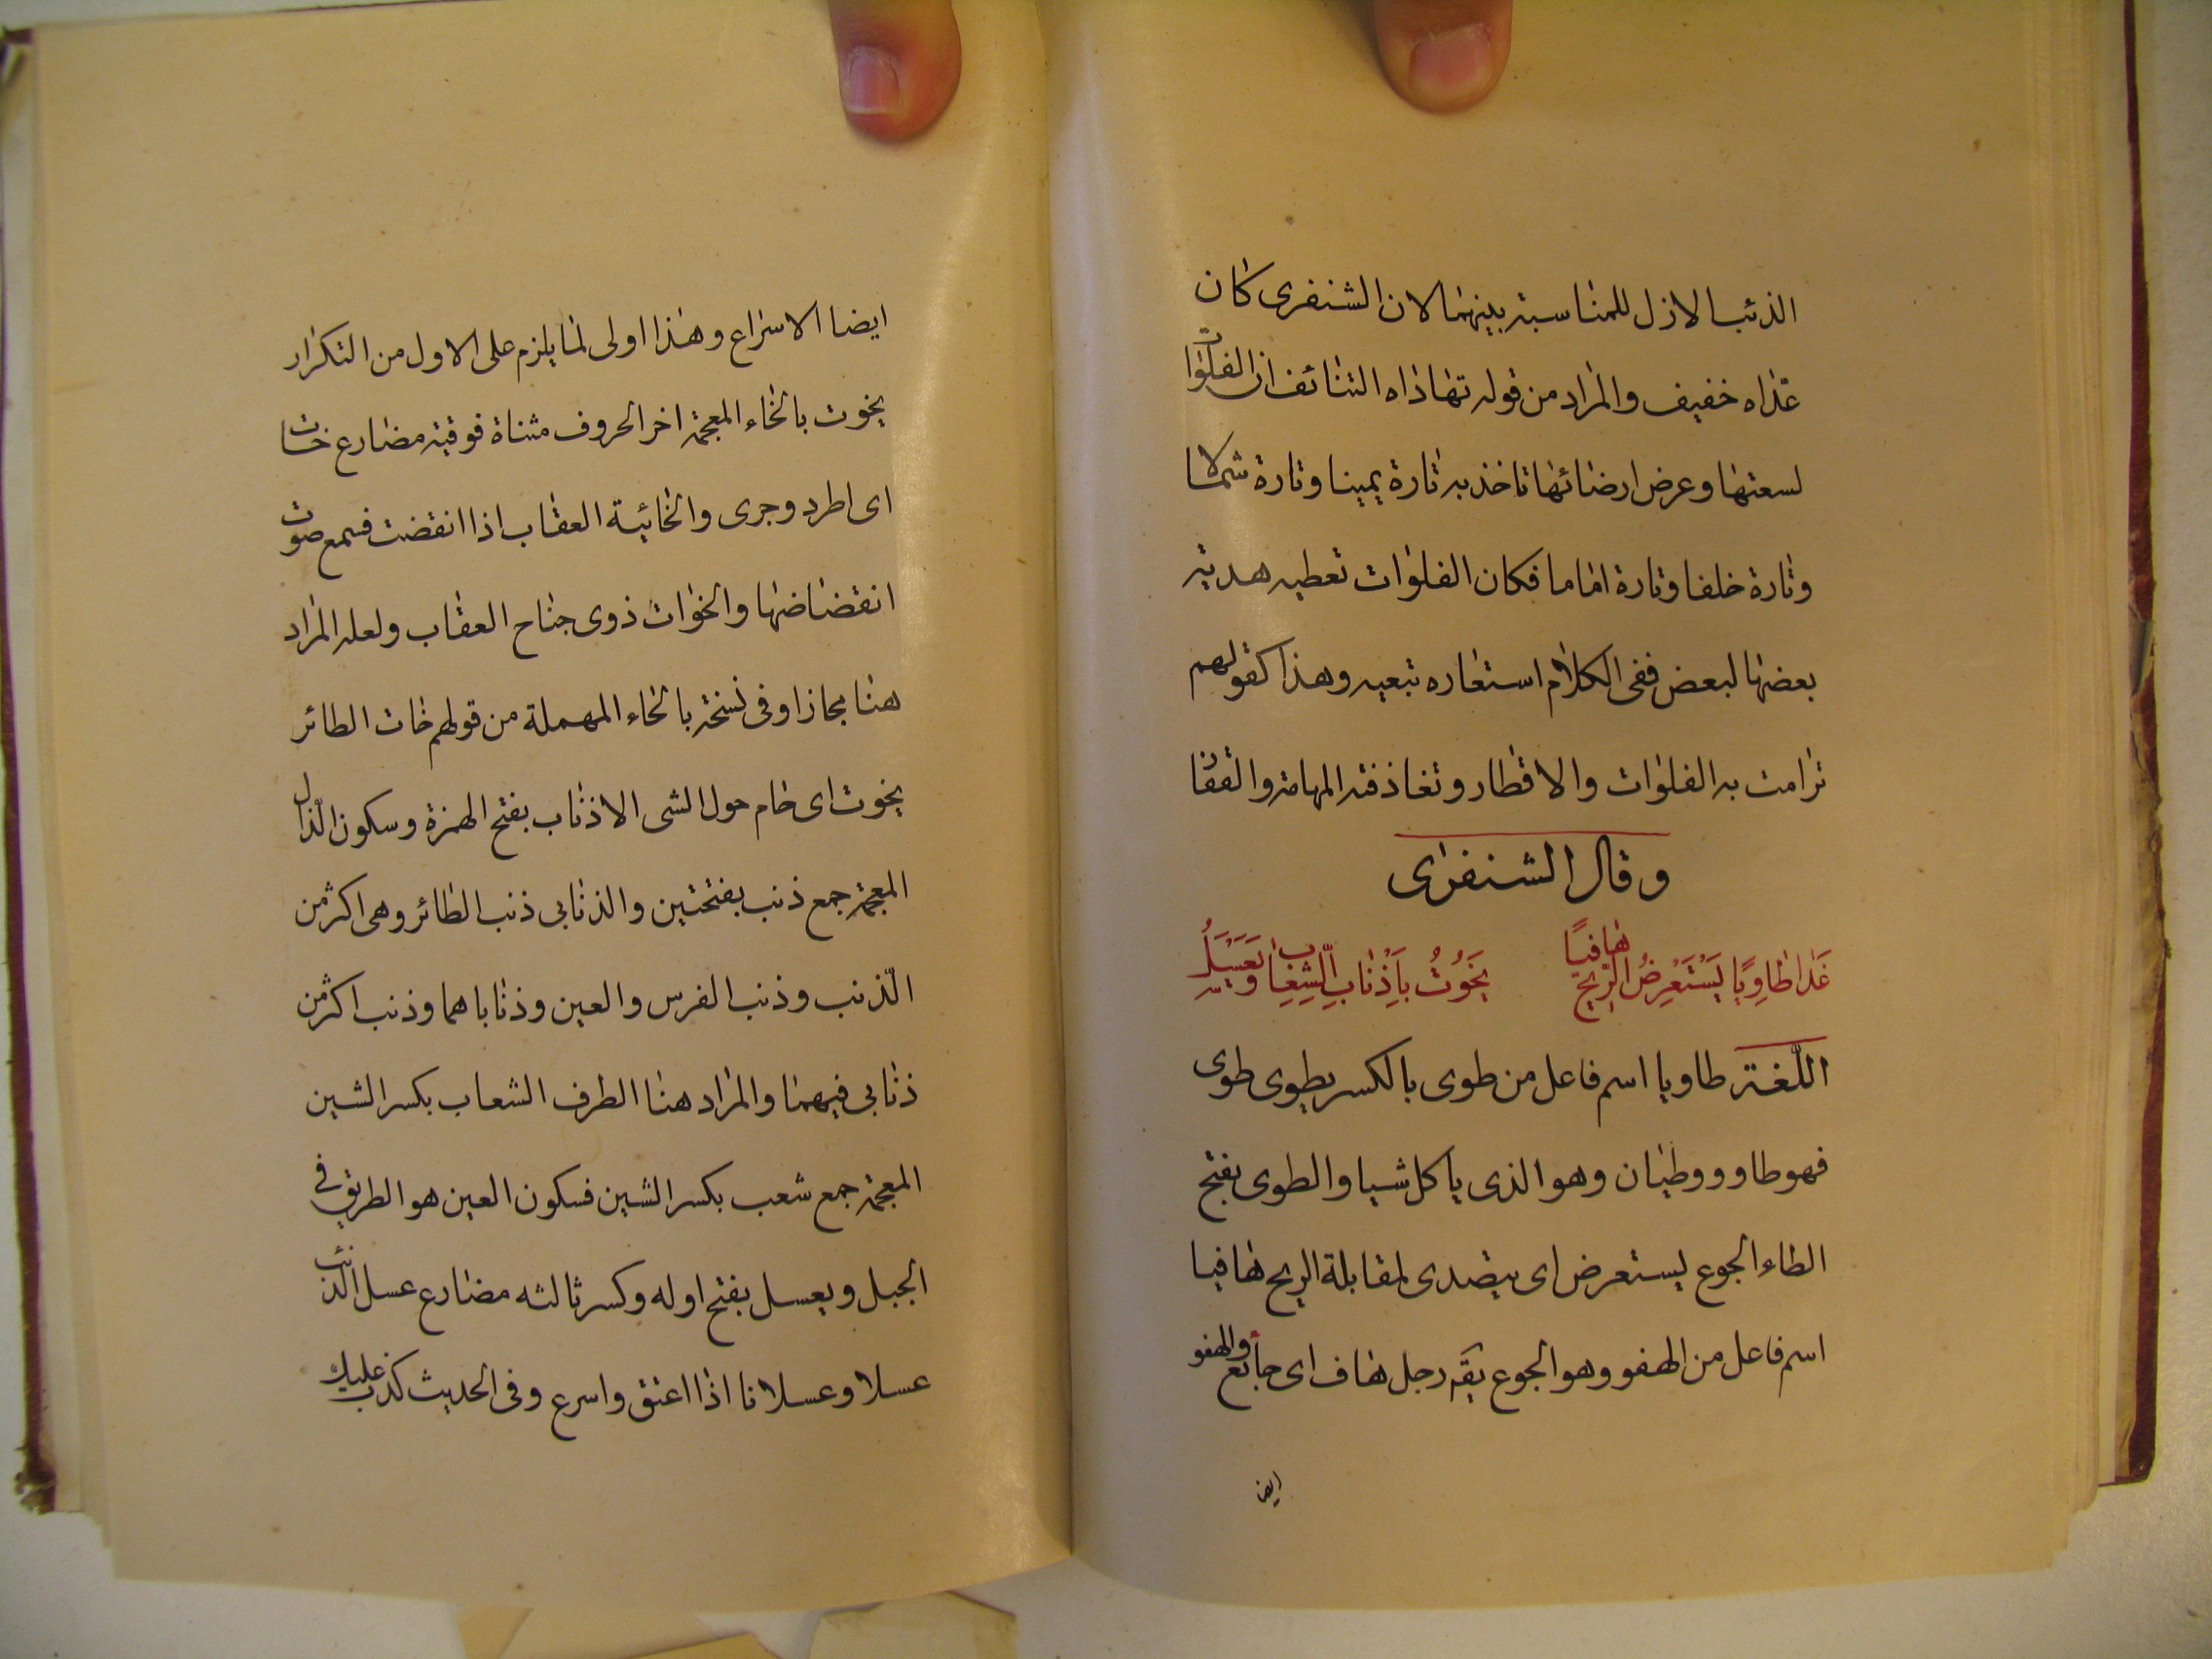 الذئب الازل للمناسبة بينهما لان الشنفرى كان
عداه خفيف والمراد من قوله تهاداه التنائف ان الفلوات
لسعتها وعرض ارضائها تاخذ به تارة يمينا وتارة شمالا
وتارة خلفا وتارة اماما فكان الفلوات تعطيه هدية
بعضها لبعض ففى الكلام استعاره تبعيه وهذا كقولهم
ترامت به الفلوات والاقطار وتغاذفته المهامه والقفار
وقال الشنفرى
غَدا طاوِيًا يَسْتَعرِضُ الرِّيحَ هافيًا يَخُوتُ بِاَذْنابِ الشِّعابِ وَيَعسِلُ
اللّغة طاويا اسم فاعل من طوى بالكسر يطوى طوى
فهو طاو ووطيان وهو الذى ياكل شيا والطوى بفتح
الطاء الجوع يستعرض اى يتصدى لمقابلة الريح هافيا
اسم فاعل من الهفو وهو الجوع يقه رجل هاف اى جائع والهفو
ايضا
ايضا الاسراع وهذا اولى لما يلزم على الاول من التكرار
يخوت بالخاء المعجمة اخر الحروف مثناة فوقيه مضارع خات
اى اطرد وجرى والخائية العقاب اذا انقضت فسمع صوت
انقضاضها والخوات ذوى جناح العقاب ولعله المراد
هنا مجازا وفى نسخة بالخاء المهملة من قولهم خات الطائر
يخوت اى خام حول الشى الاذناب بفتح الهمزة وسكون الذال
المعجمة جمع ذنب بفتحتين والذنابى ذنب الطائر وهى اكثر من
الذنب وذنب الفرس والعين وذناباهما وذنب اكثر من
ذنابى فيهما والمراد هنا الطرف الشعاب بكسر الشين
المعجمة جمع شعب بكسر الشين فسكون العين هو الطريق فى
الجبل ويعسل بفتح اوله وكسر ثالثه مضارع عسل الذئب
عسلا وعسلانا اذا اعنق واسرع وفى الحديث كذب عليك